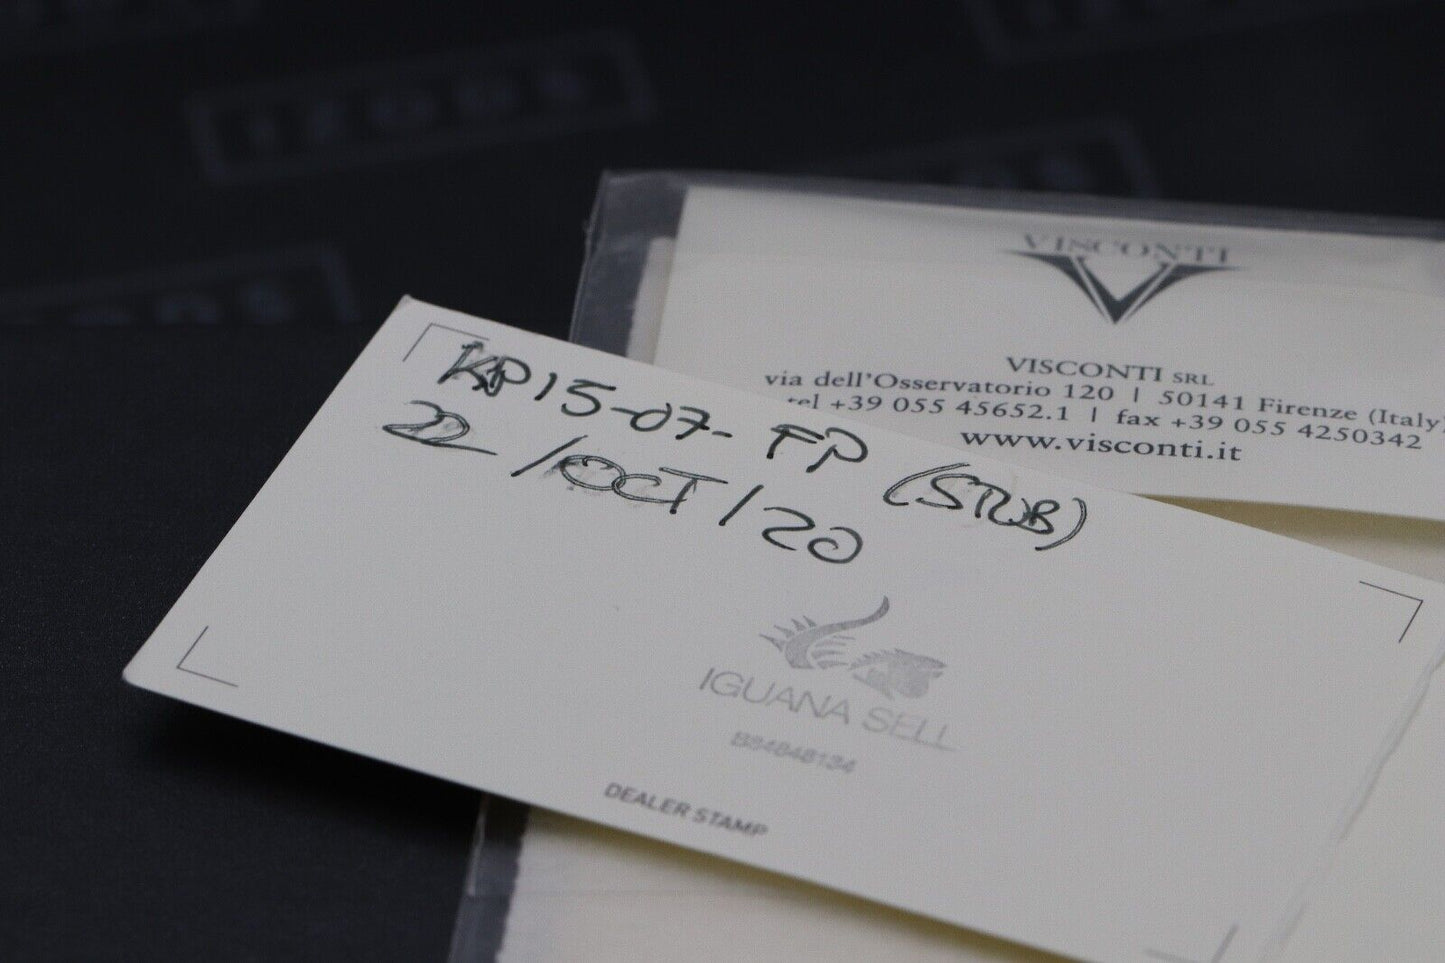 VISCONTI
VISCONTI SRL
via dell'Osservatorio 120 | 50141 Firenze (Italy)
tel +39 055 45652.1 | fax +39 055 4250342
www.visconti.it
KP15-07-FP (STUB)
22/OCT/20
IGUANA SELL
B84848134
DEALER STAMP